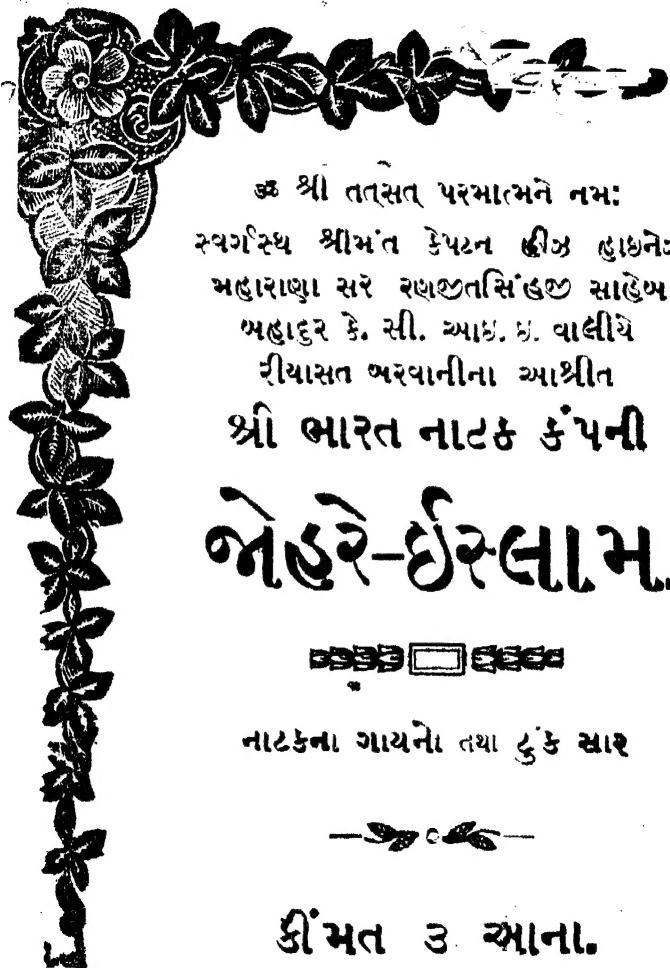 ૐ શ્રી તત્સત્ પરમાત્મને નમઃ
સ્વર્ગસ્થ શ્રીમંત કેપટન હીઝ હાઇનેઃ
મહારાણા સર રણજીતસિંહજી સાહેબ
બહાદુર કે. સી. આઇ. ઇ. વાલીયે
રીયાસત બરવાનીના આશ્રીત
શ્રી ભારત નાટક કંપની
જોહરે-ઈસ્લામ.
નાટકના ગાયનો તથા ટુંક સાર
કીંમત ૩ આના.